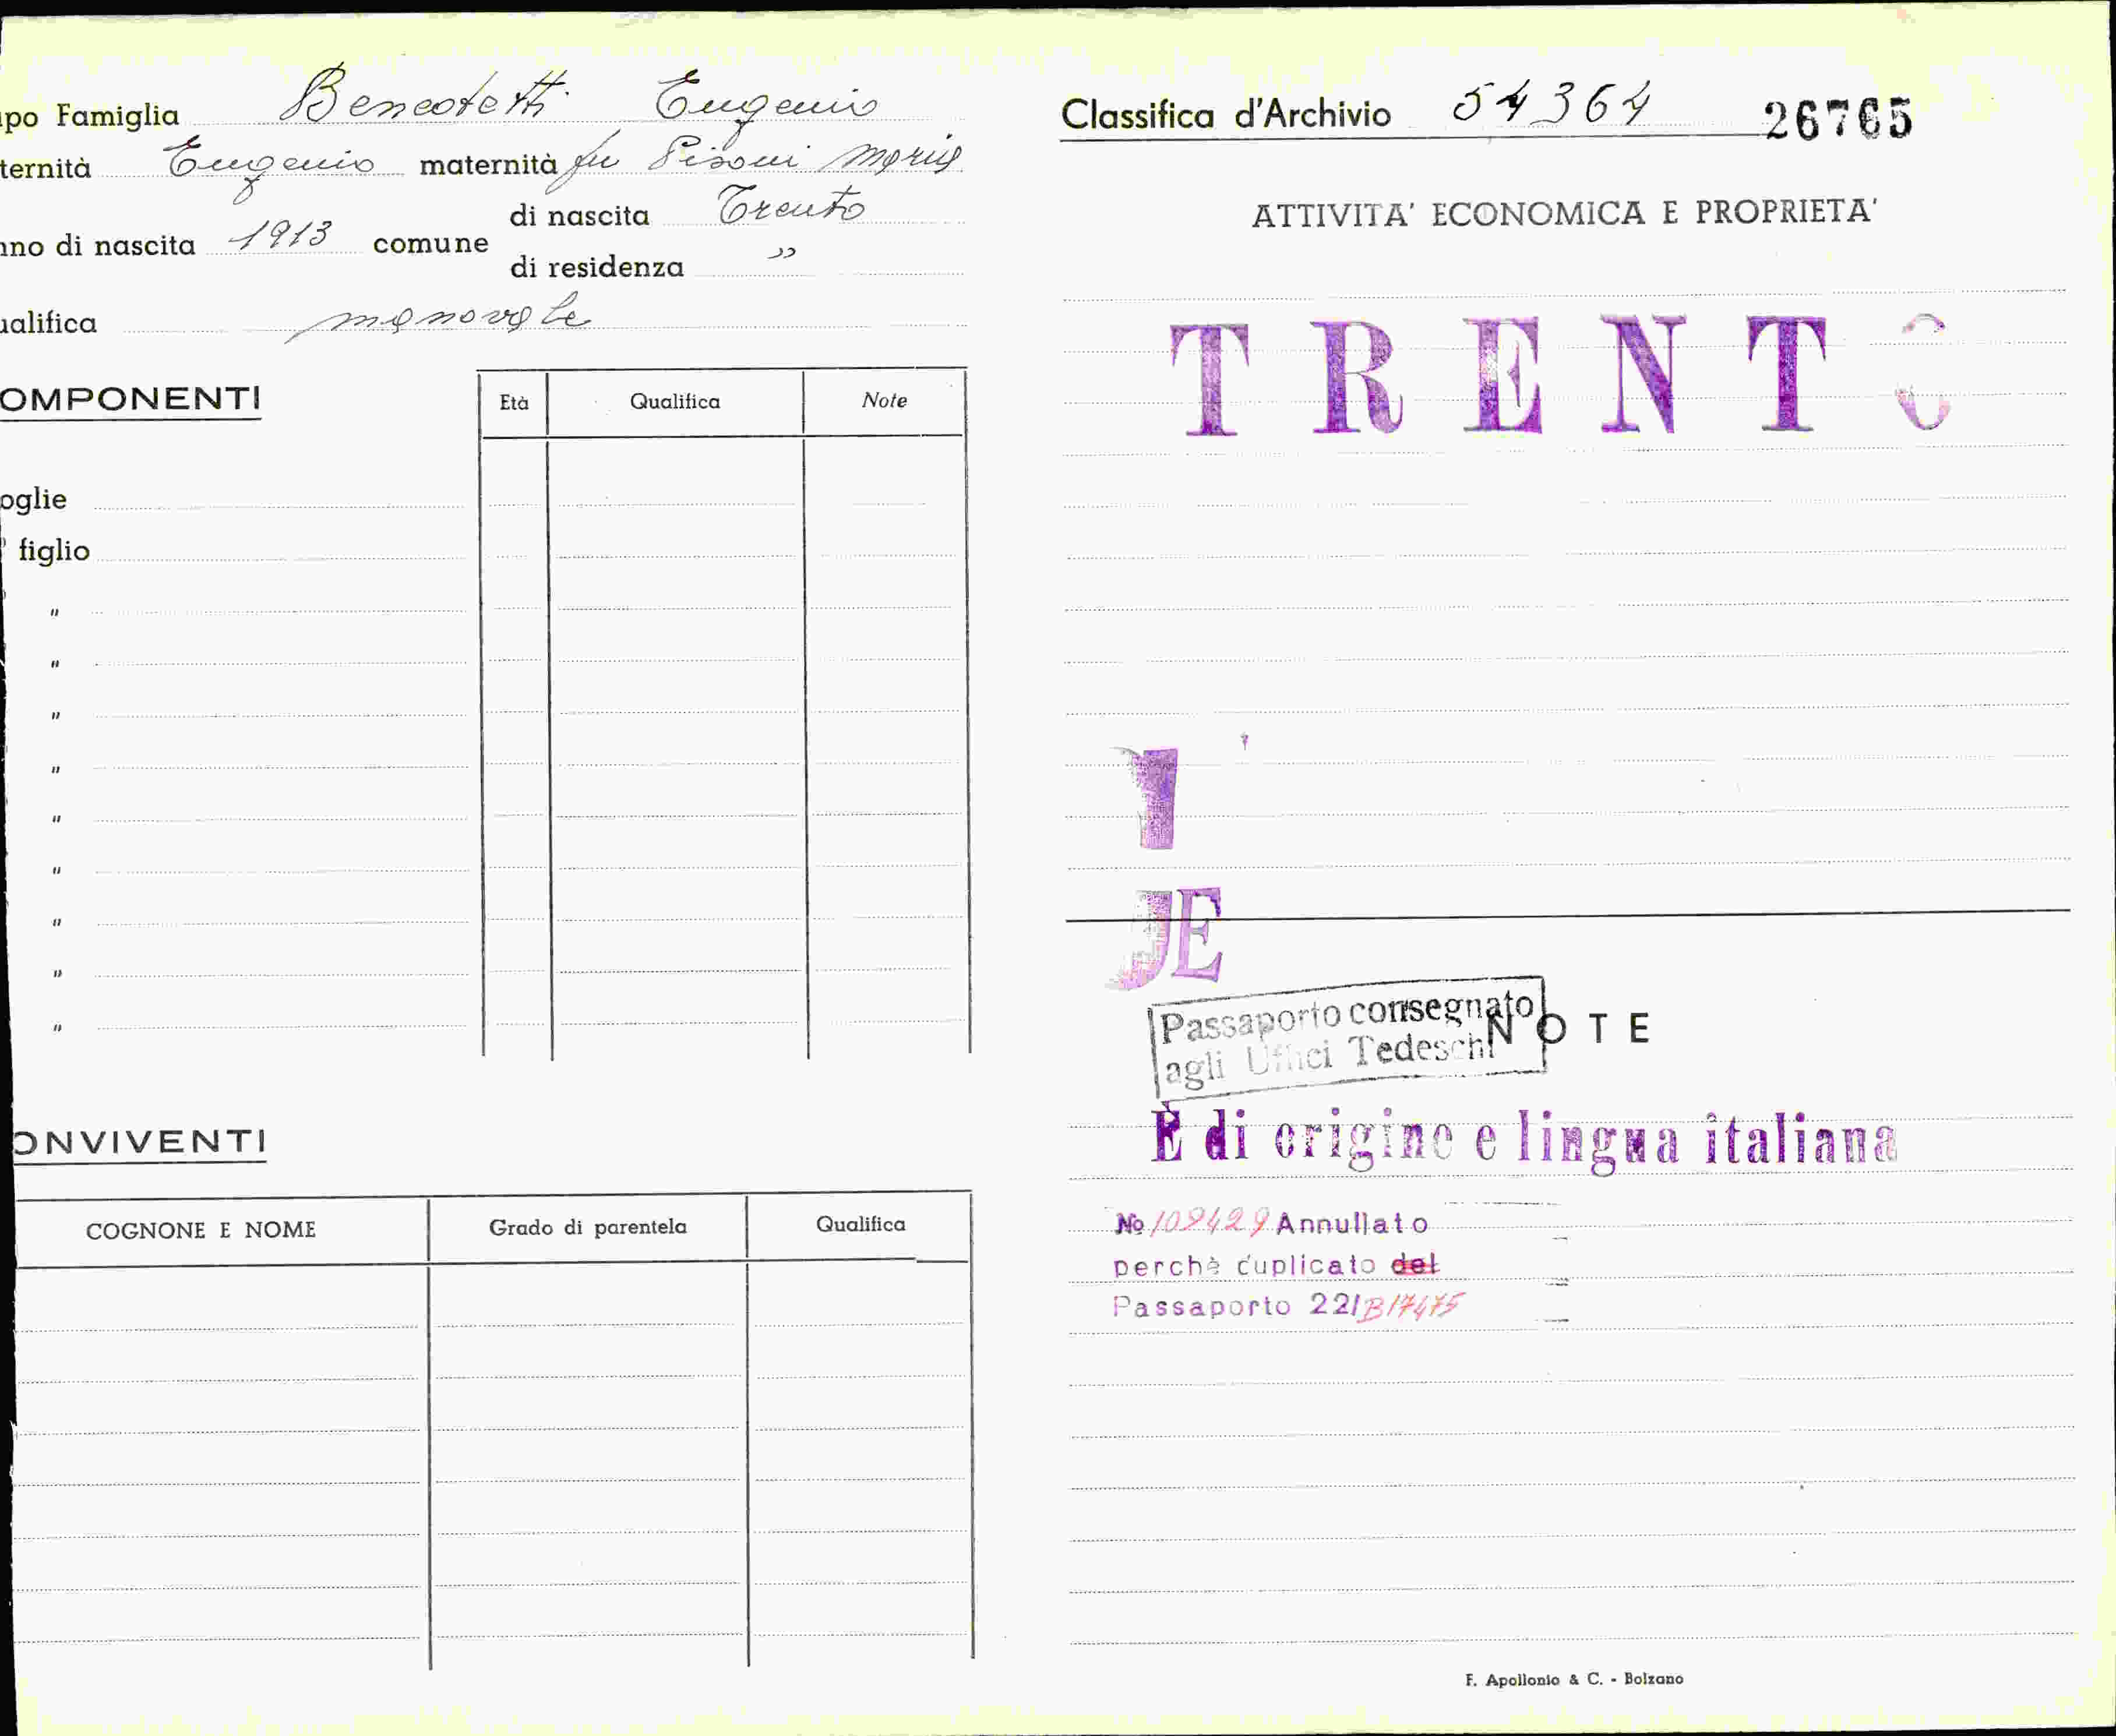 po Famiglia Benedetti Eugenio
ternità Eugenio maternità fu Pisoni Maria
nno di nascita 1913 comune di nascita Trento
di residenza "
ualifica manovale
OMPONENTI Età Qualifica Note
oglie
figlio
"
"
"
"
"
"
"
"
"
ONVIVENTI
COGNONE E NOME Grado di parentela Qualifica
Classifica d'Archivio 54364 26765
ATTIVITA' ECONOMICA E PROPRIETA'
TRENTO
JE
Passaporto consegnato
agli Uffici Tedeschi
NOTE
È di origine e lingua italiana
No 109429 Annullato
perchè duplicato del
Passaporto 22/B/7475
F. Apollonio & C. - Bolzano